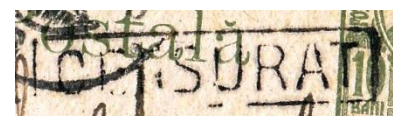 ostală
CENSURAT
10